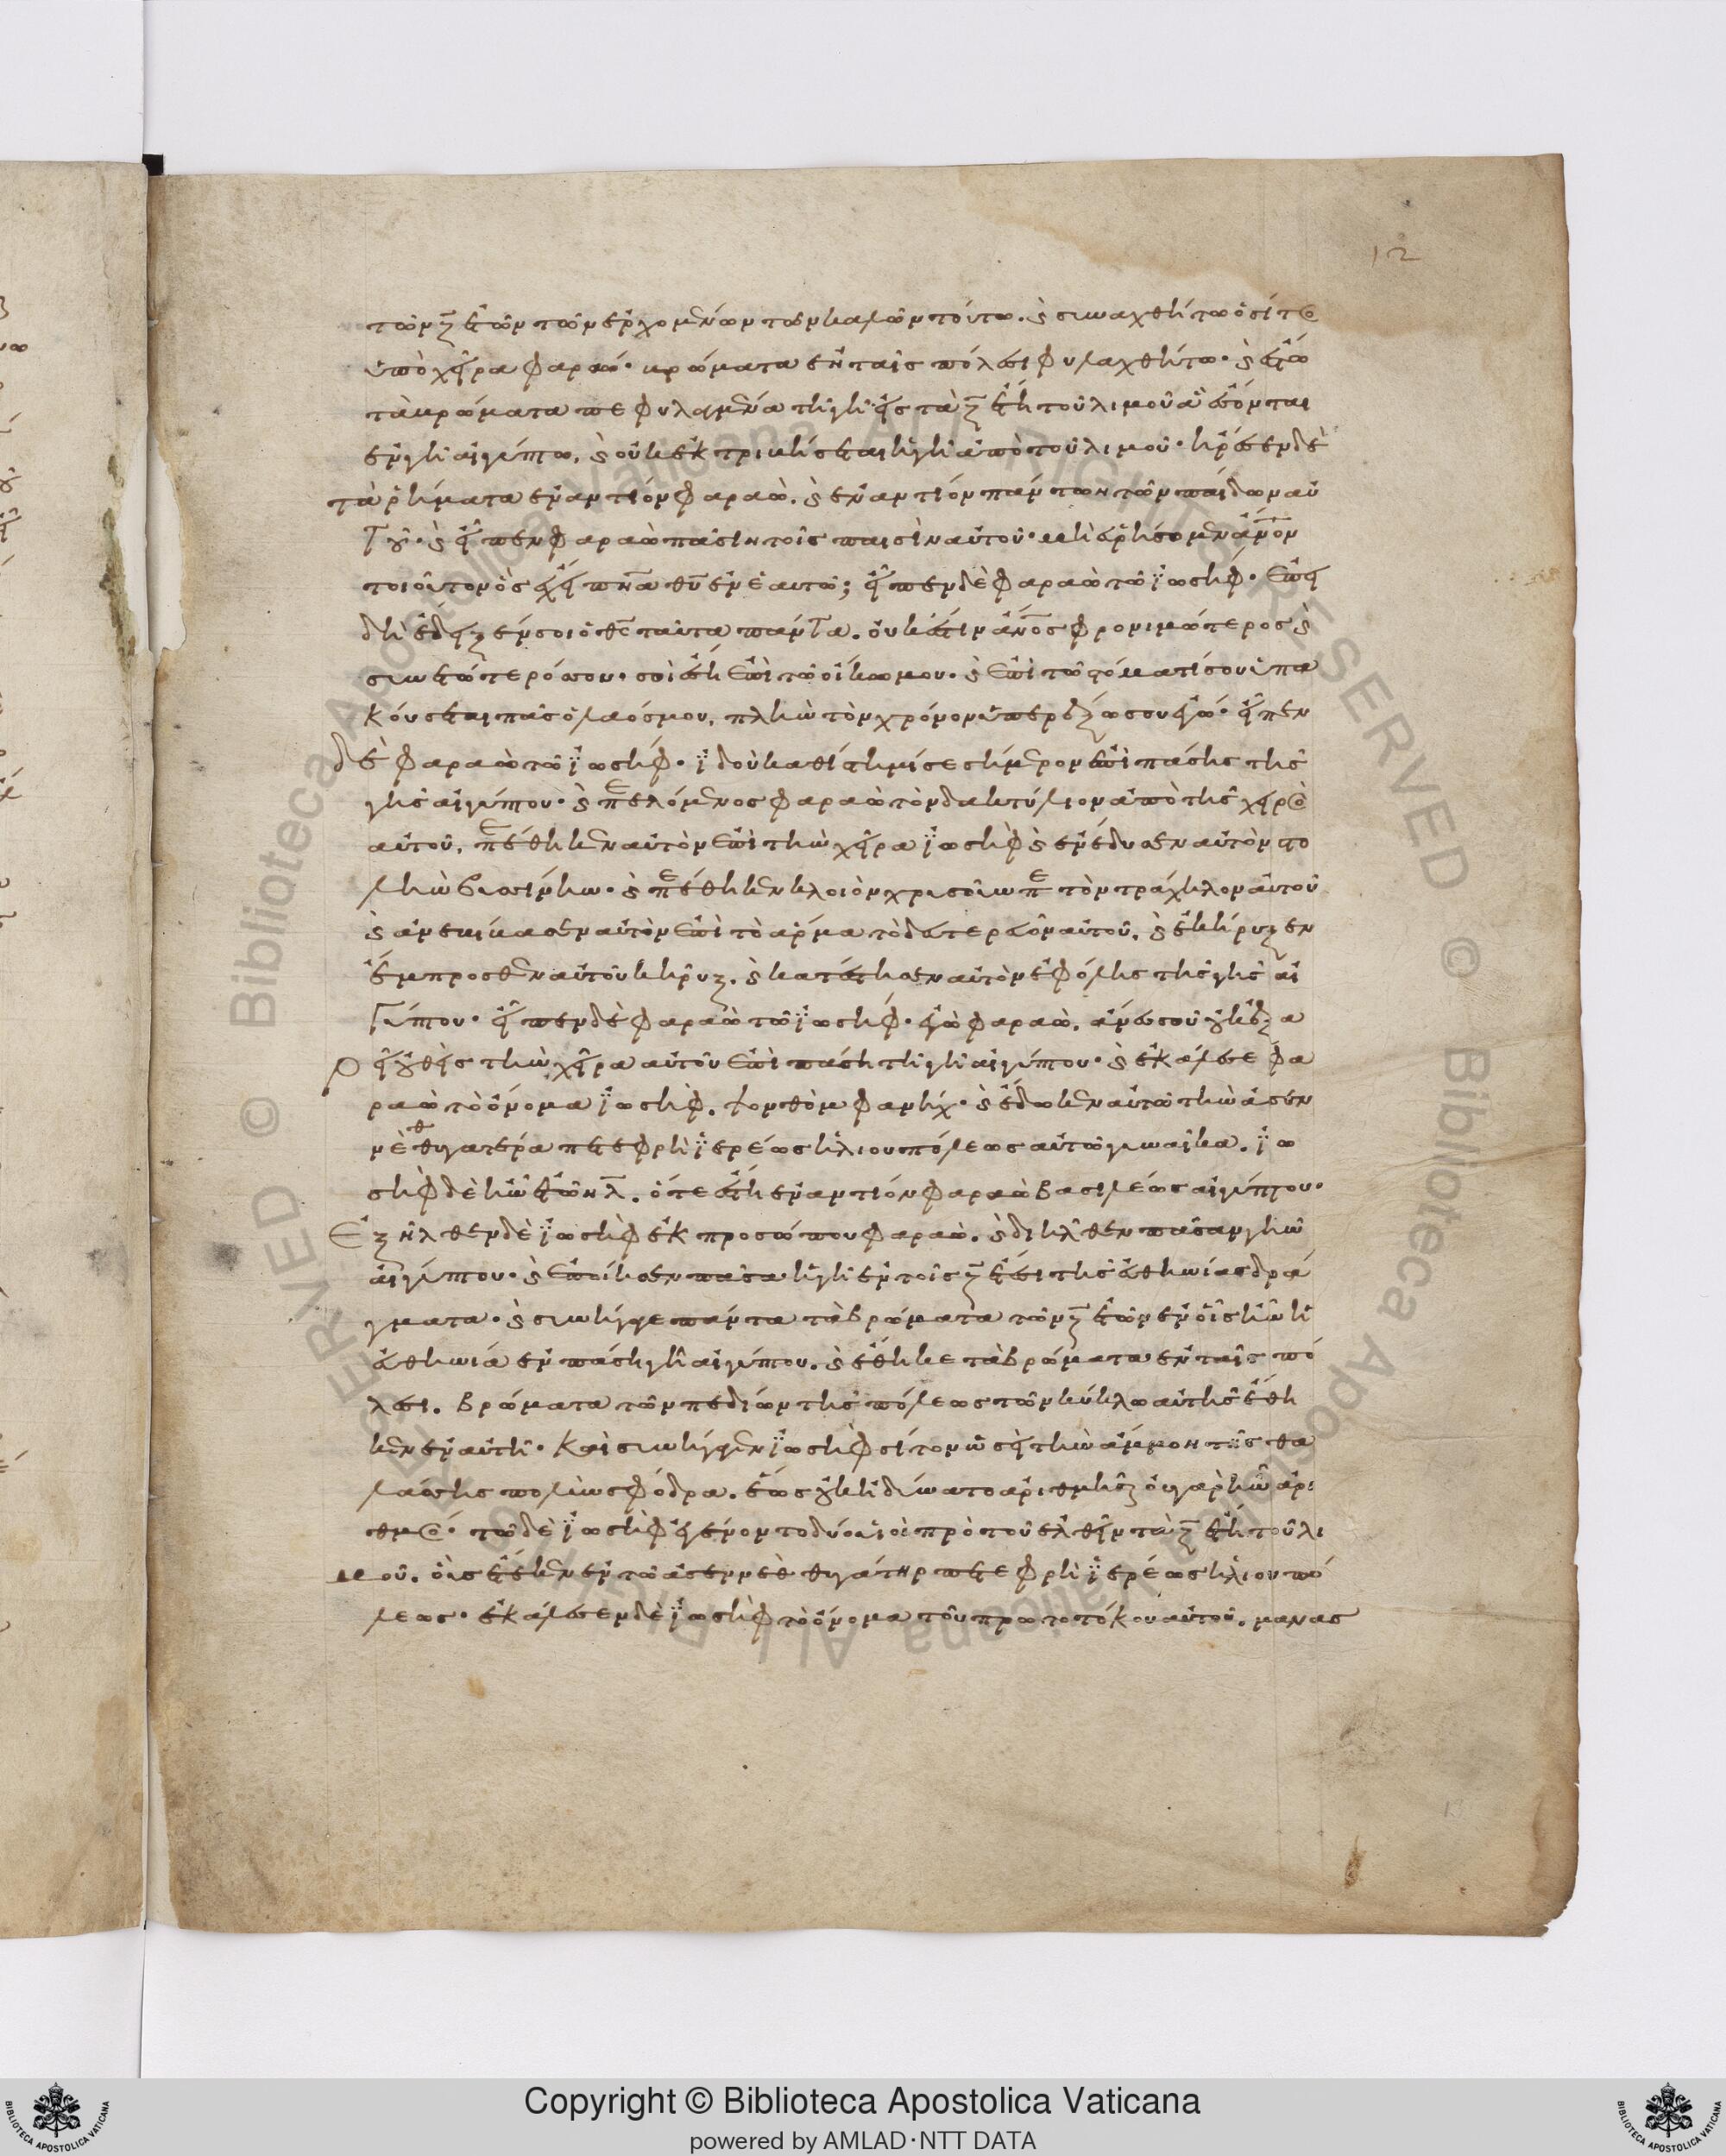 12
τῶν ζ ἐτῶν τῶν ἐρχομένων τῶν καλῶν τούτω. ϗ συναχθήτω ὁ σίτος
ὑπὸ χεῖρα φαραώ· βρώματα ἐν ταῖς πόλεσι φυλαχθήτω· ϗ ἔσται
τὰ βρώματα πεφυλαγμένα τῆ γῆ εἰς τὰ ζ ἔτη τοῦ λιμοῦ ἃ ἔσονται
ἐν γῆ αἰγύπτω, ϗ οὐκ ἐκτριβήσεται ἡ γῆ ἀπὸ τοῦ λιμοῦ· ἤρεσεν δὲ
τὰ ῥήματα ἐναντίον φαραώ. ϗ ἐναντίον πάντων τῶν παίδων αὐ
τοῦ· ϗ εἶπεν φαραὼ πᾶσιν τοῖς παισὶν αὐτοῦ· μὴ εὑρήσομεν ἄνον
τοιοῦτον ὃς ἔχει πνα θυ ἐν ἑαυτῶ; εἶπεν δὲ φαραὼ τῶ ϊωσήφ· ἐπει
δὴ ἔδειξέν σοι ὁ θς ταῦτα πάντα. οὐκ ἔστιν ἄνος φρονιμώτερος ϗ
συνετώτερός σου· σοὶ ἔση ἐπὶ τῶ οἴκω μου· ϗ ἐπὶ τῶ στόματί σου ὑπα
κούσεται πᾶς ὁ λαός μου, πλὴν τὸν χρόνον ὑπερέξω σου ἐγώ· εἶπεν
δὲ φαραὼ τῶ ϊωσήφ· ϊδοὺ καθίστημί σε σήμερον ἐπὶ πάσης τῆς
γῆς αἰγύπτου· ϗ πελόμενος φαραὼ τὸν δακτύλιον ἀπὸ τῆς χειρὸς
αὐτοῦ, πέθηκεν αὐτὸν ἐπὶ τὴν χεῖρα ϊωσὴφ ϗ ἐνέδυσεν αὐτὸν στο
λὴν βυσσίνην· ϗ πέθηκεν κλοιὸν χρυσοῦν πε τὸν τράχηλον αὐτοῦ
ϗ ἀνεβίβασεν αὐτὸν ἐπὶ τὸ ἅρμα τὸ δεύτερον αὐτοῦ, ϗ ἐκήρυξεν
ἔμπροσθεν αὐτοῦ κῆρυξ. ϗ κατέστησεν αὐτὸν ἐφ ὅλης τῆς γῆς αἰ
γύπτου· εἶπεν δὲ φαραὼ τῶ ϊωσήφ· ἐγὼ φαραώ, ἄνευ σοῦ οὐκ ἐξα
ρεῖ οὐθεὶς τὴν χεῖρα αὐτοῦ ἐπὶ πάση τῆ γῆ αἰγύπτου· ϗ ἐκάλεσε φα
ραὼ τὸ ὄνομα ϊωσὴφ, ψονθὸμ φανήχ· ϗ ἔδωκεν αὐτῶ τὴν ἀσεν
νὲθ θυγατέρα πετεφρῆ ϊερέως ἡλιουπόλεως αὐτῶ γυναῖκα. ϊω
σὴφ δὲ ἦν ἐτῶν λ. ὅτε ἔστη ἐναντίον φαραὼ βασιλέως αἰγύπτου·
Ἐξῆλθεν δὲ ϊωσὴφ ἐκ προσώπου φαραώ. ϗ διῆλθεν πᾶσαν γῆν
αἰγύπτου· ϗ ἐποίησεν πᾶσα ἡ γῆ ἐν τοῖς ζ ἔτεσι τῆς εὐθηνίας δρά
γματα· ϗ συνήγαγε πάντα τὰ βρώματα τῶν ζ ἐτῶν ἐν οἷς ἦν ἡ
εὐθηνία ἐν πάση γῆ αἰγύπτου. ϗ ἔθηκε τὰ βρώματα ἐν ταῖς πό
λεσι. βρώματα τῶν πεδίων τῆς πόλεως τῶν κύκλω αὐτῆς ἔθη
κεν ἐν αὐτῆ· Καὶ συνήγαγεν ϊωσὴφ σίτον ὡσεὶ τὴν ἄμμον τῆς θα
λάσσης πολὺν σφόδρα. ἕως οὐκ ἠδύνατο ἀριθμῆσαι οὐ γὰρ ἦν ἀρι
θμός· τῶ δὲ ϊωσὴφ ἐγένοντο δύο υἱοὶ πρὸ τοῦ ἐλθεῖν τὰ ζ ἔτη τοῦ λι
μοῦ. οὓς ἔτεκεν ἐν τῶ ἀσεννὲθ θυγάτηρ πετεφρῆ ϊερέως ἡλιουπό
λεως· ἐκάλεσεν δὲ ϊωσὴφ τὸ ὄνομα τοῦ πρωτοτόκου αὐτοῦ, μανασ
Copyright © Biblioteca Apostolica Vaticana
powered by AMLAD·NTT DATA